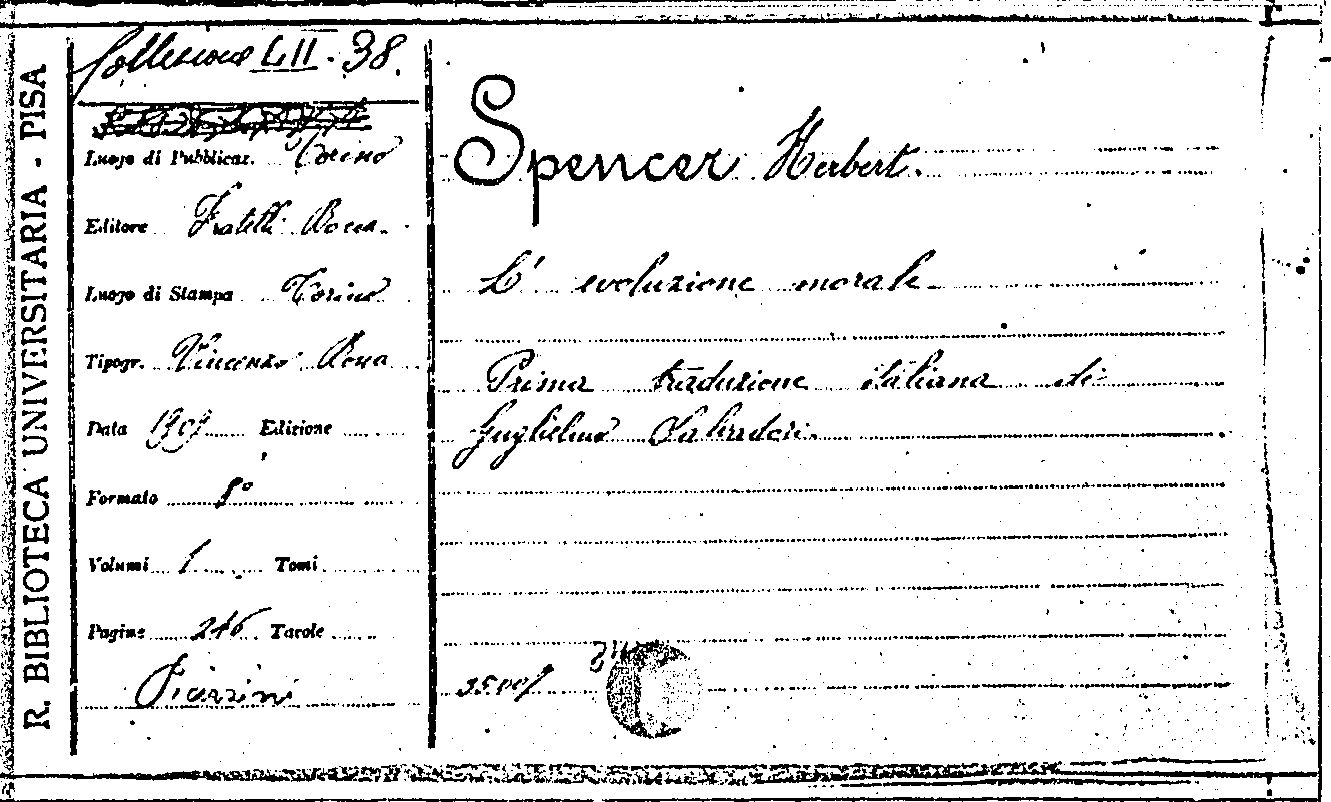 R. BIBLIOTECA UNIVERSITARIA - PISA
Collezione LII. 38.
Luogo di Pubblicaz. Torino
Editore Fratelli Bocca.
Luogo di Stampa Torino
Tipogr. Vincenzo Bona
Data 1909 Edizione
Formato 8°
Volumi 1 Tomi
Pagine 246 Tavole
Piazzini
Spencer Herbert.
L' evoluzione morale
Prima traduzione italiana di
Guglielmo Salvadori.